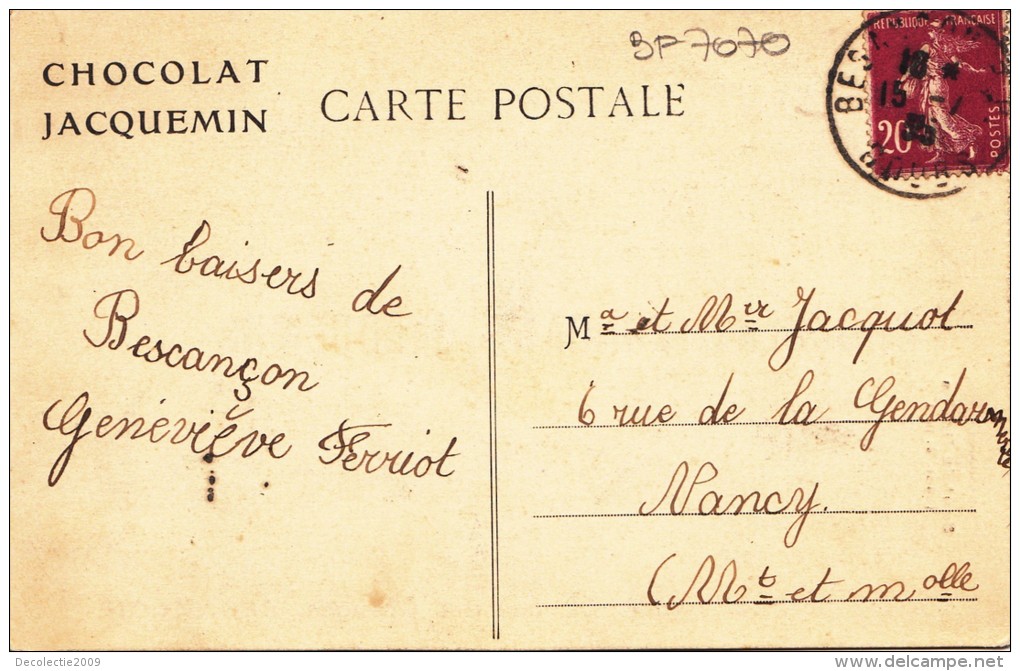 CHOCOLAT
JACQUEMIN
CARTE POSTALE
3P7070
REPUBLIQUE FRANÇAISE
20
POSTES
BES
18 *
15
35
DOUBS
Bon baisers de
Bescançon
Genéviève Ferriot
Ma et Mer Jacquot
6 rue de la Gendarmerie
Nancy.
(Mt et molle
Decolectie2009
delcampe.net